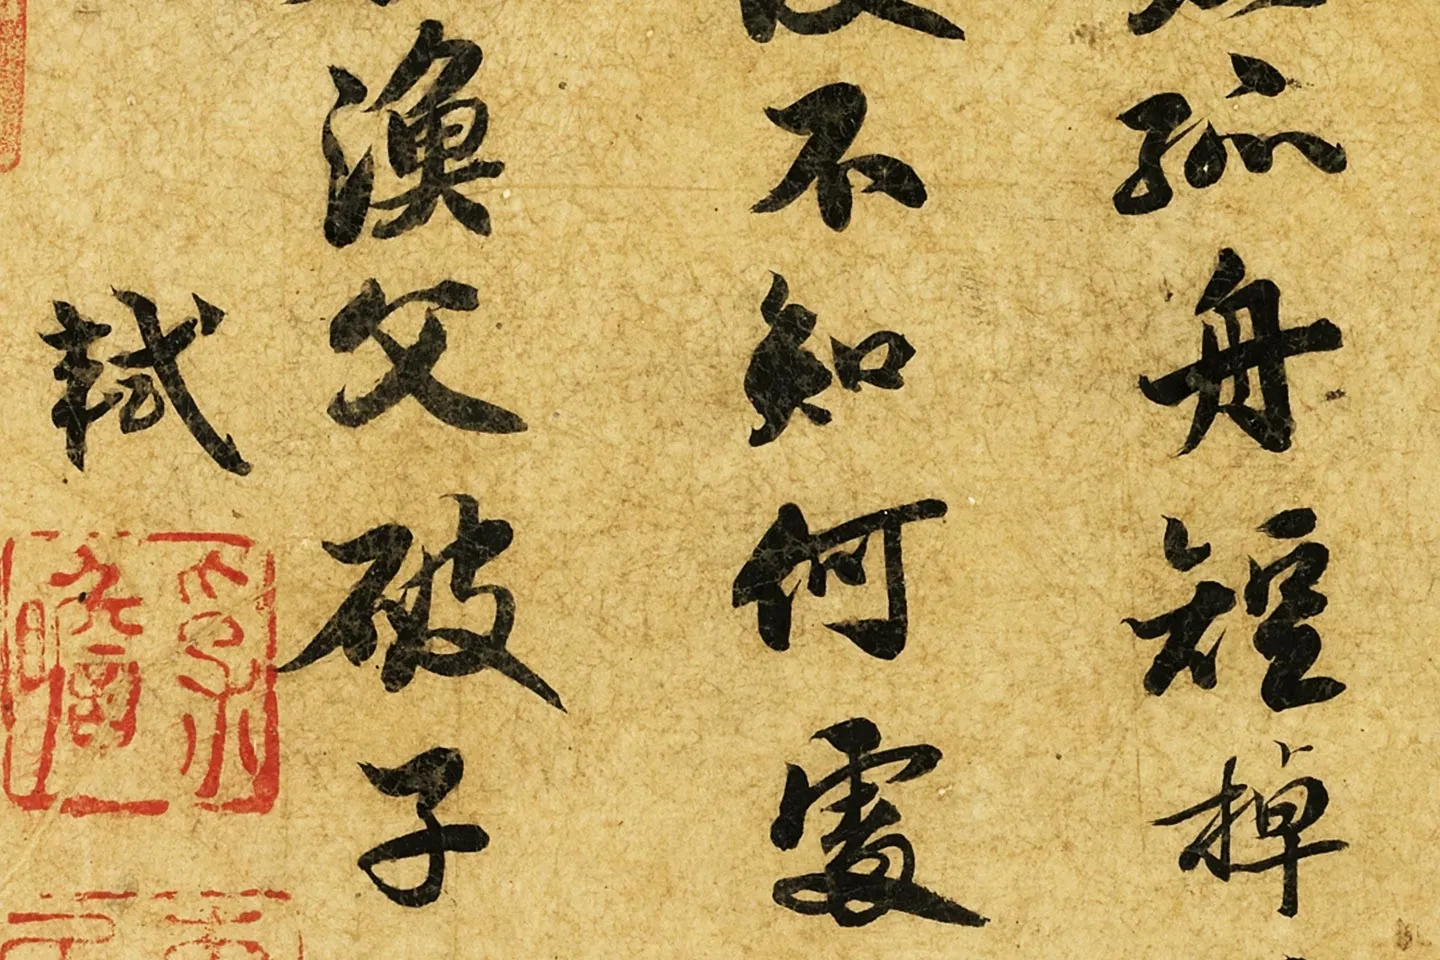 孤舟短棹
不知何處
漁父破子
軾